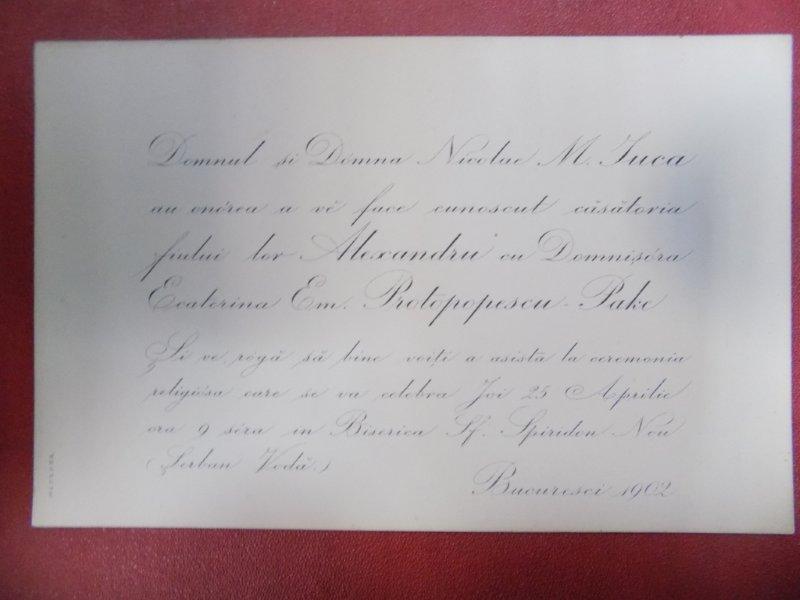 Domnul și Dómna Nicolae M. Țuca
au onórea a vĕ face cunoscut căsătoria
fiului lor Alexandru cu Domnișóra
Ecaterina Em. Protopopescu-Pake
Și ve rógă să bine voiți a asista la ceremonia
religiósa care se va celebra Joi 25 Aprilie
ora 9 séra in Biserica Sf. Spiridon Nou
(Șerban Vodă.)
Bucuresci 1902